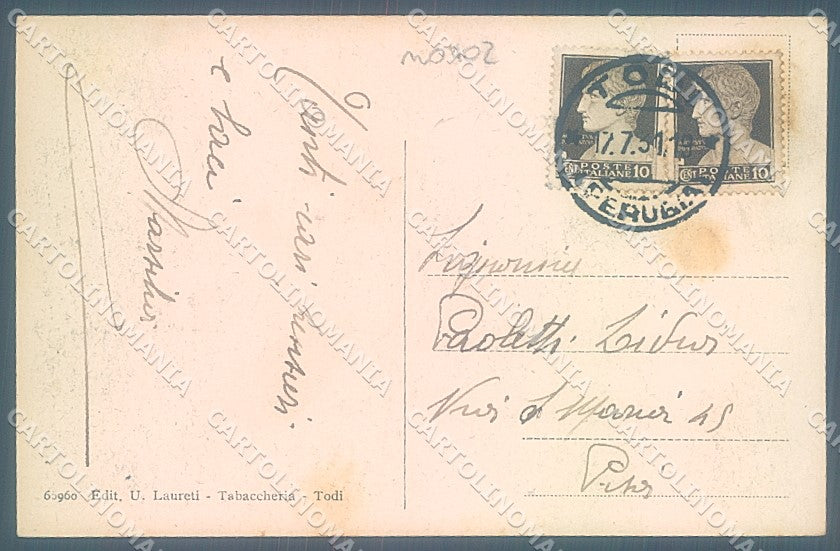 m09702
Tanti cari pensieri.
e baci
TODI
17.7.31.18
(PERUGIA)
POSTE
ITALIANE
CENT 10
POSTE
ITALIANE
CENT 10
Signorina
Paoletti Lidia
Via S Maria 45
Pisa
Edit. U. Laureti - Tabaccheria - Todi
CARTOLINOMANIA